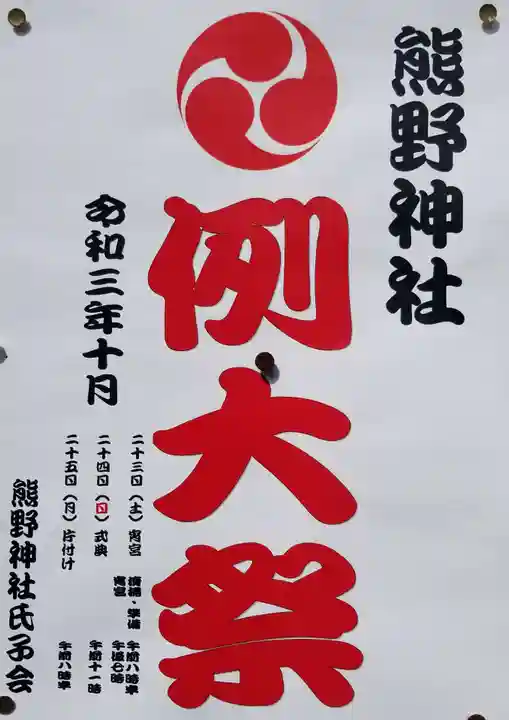 熊野神社
例大祭
令和三年十月
二十三日(土)宵宮 清掃・準備 午前八時半
宵宮 午後七時
二十四日(日)式典 午前十一時
二十五日(月)片付け 午前八時半
熊野神社氏子会